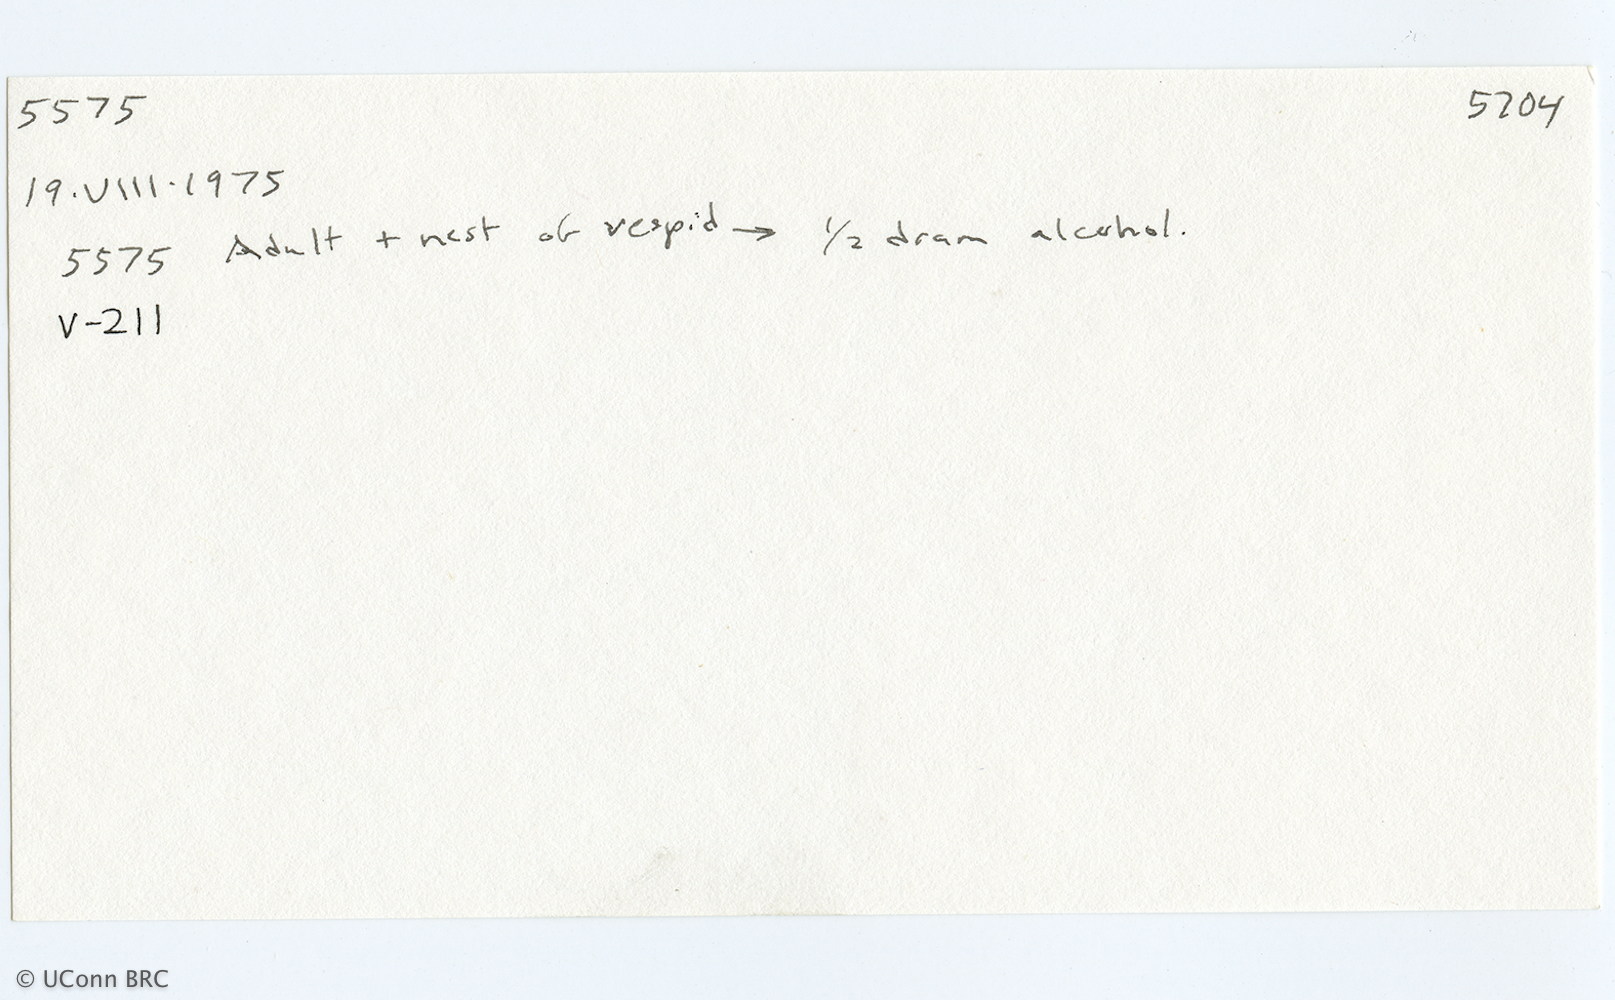 5575 5204
19.VIII.1975
5575 Adult + nest of vespid → 1/2 dram alcohol.
V-211
© UConn BRC